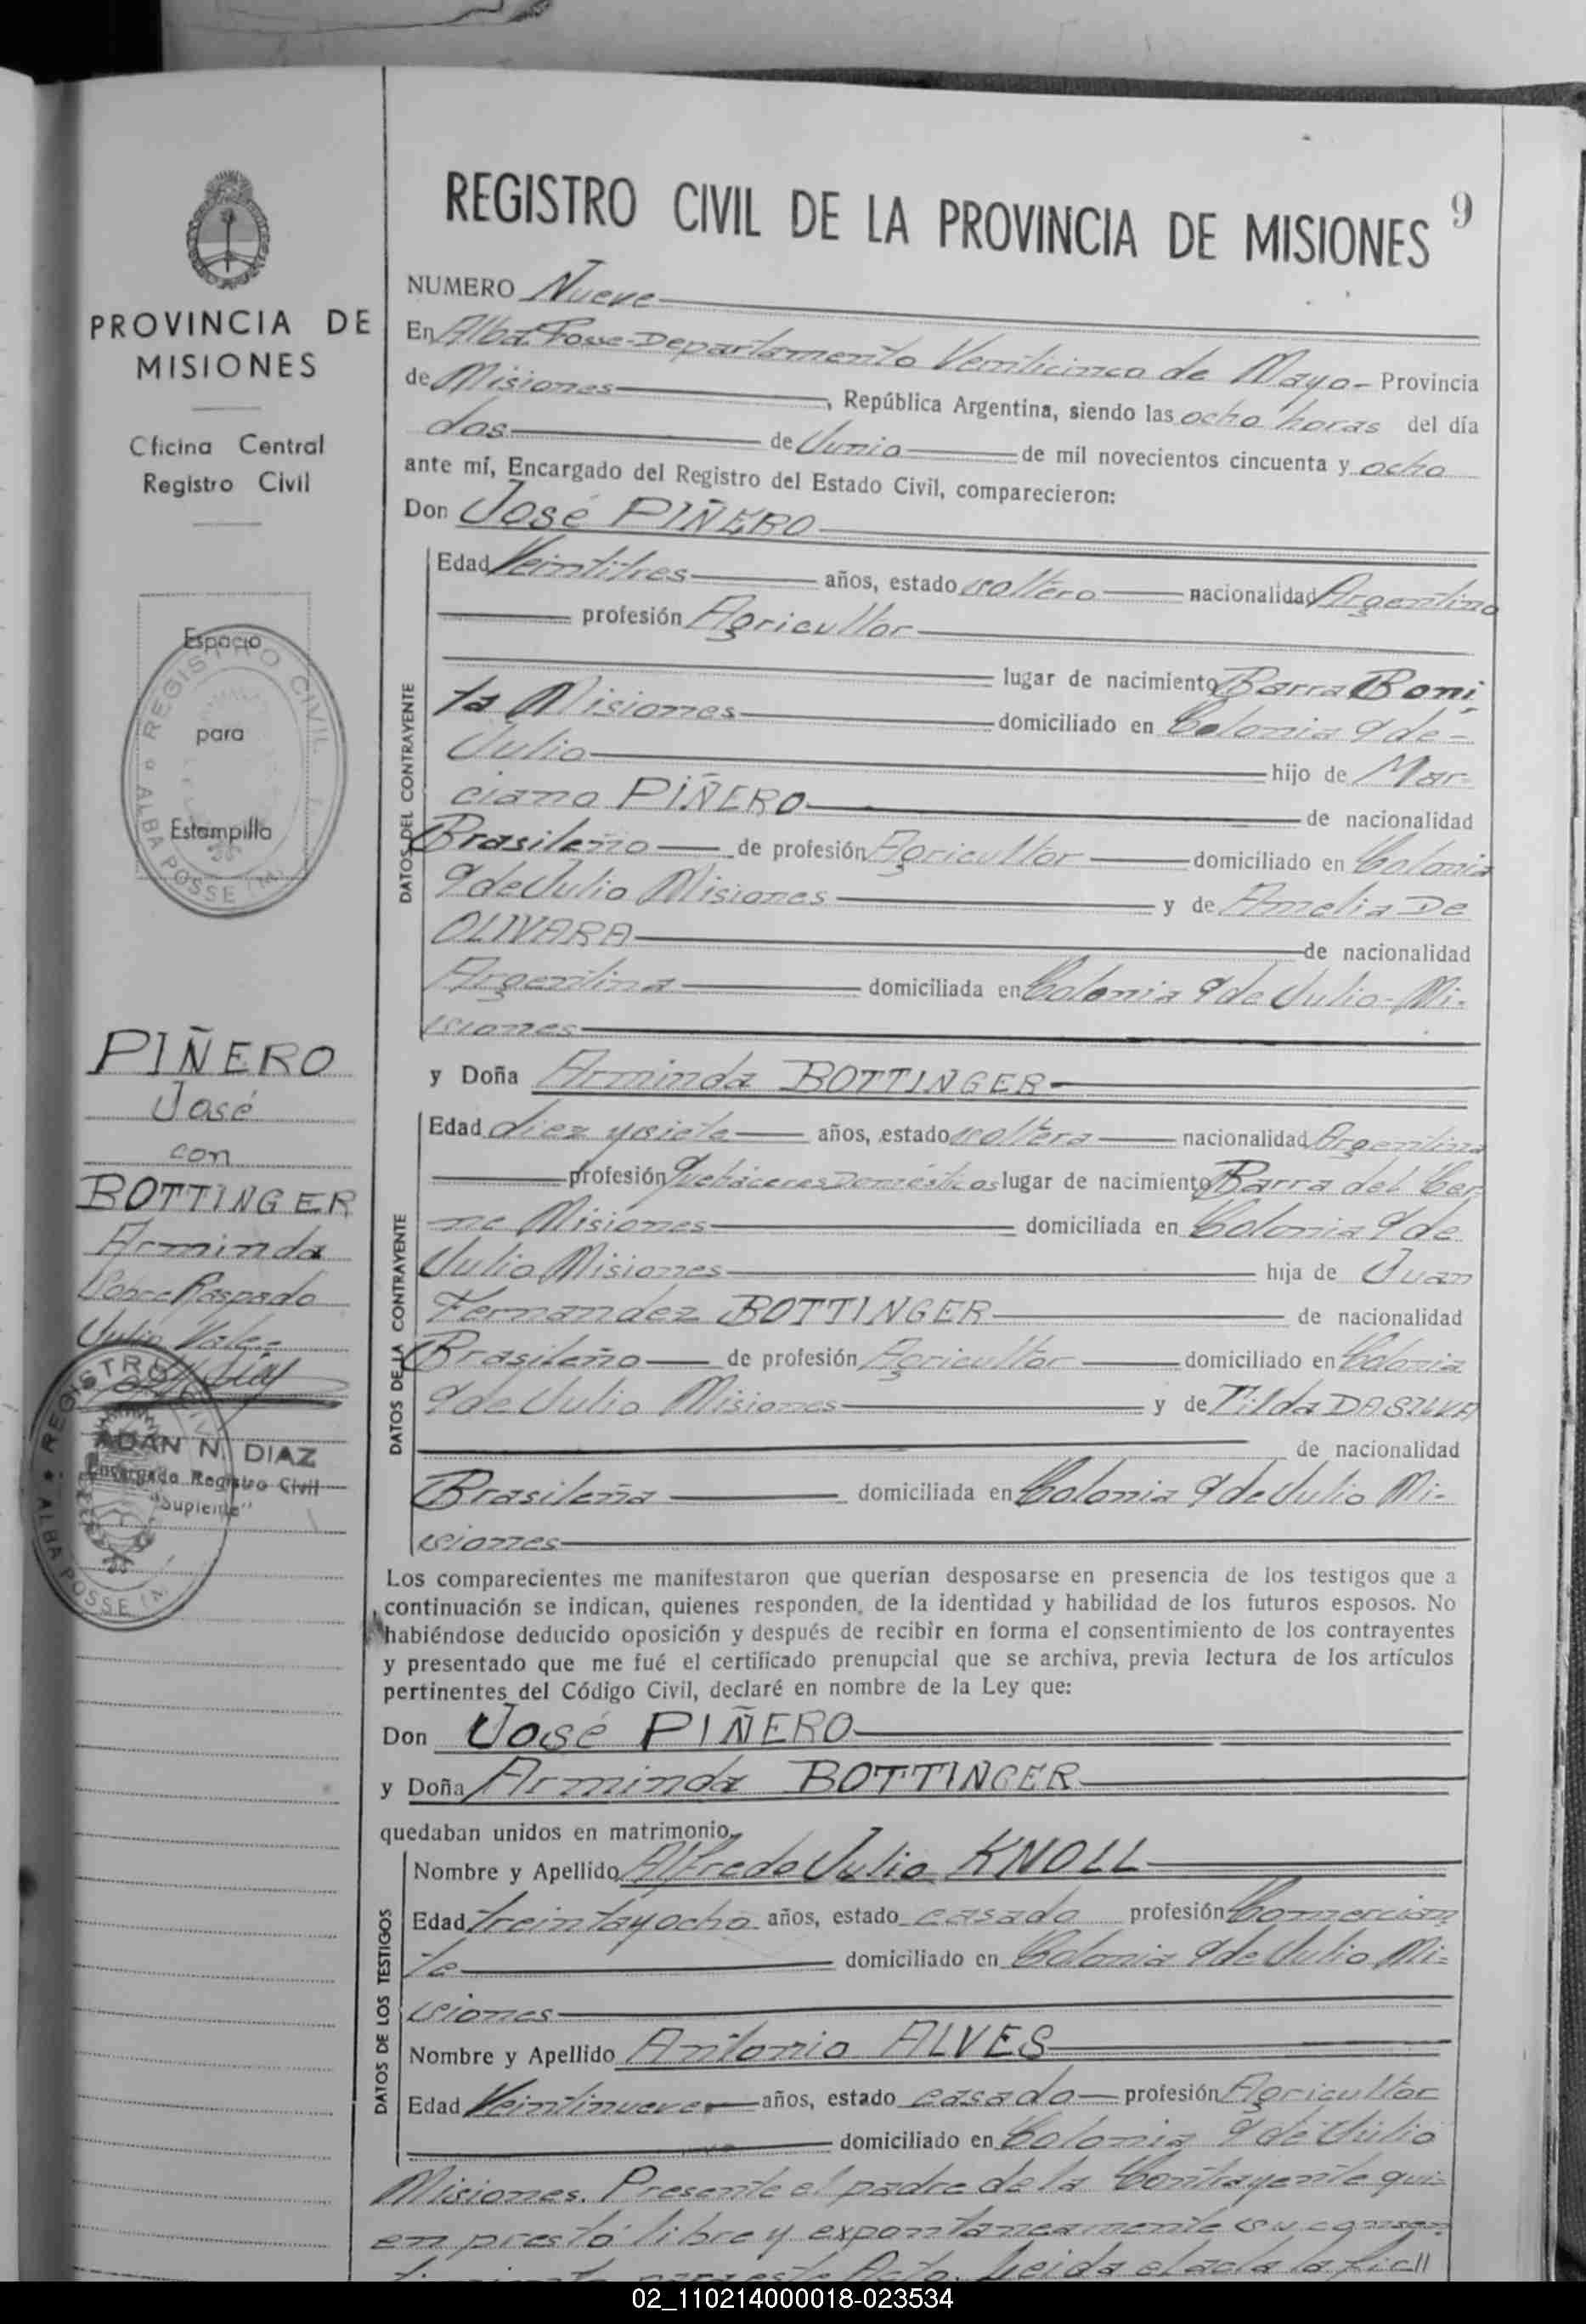 PROVINCIA DE
MISIONES
Oficina Central
Registro Civil
Espacio
para
Estampilla
REGISTRO CIVIL
ALBA POSSE (M)
PIÑERO
José
con
BOTTINGER
Arminda
Sobre Raspado
Julio Vale.
REGISTRO CIVIL
ALBA POSSE (M)
ADAN N. DIAZ
Encargado Registro Civil
"Suplente"
REGISTRO CIVIL DE LA PROVINCIA DE MISIONES 9
NUMERO Nueve
En Alba Posse-Departamento Veinticinco de Mayo- Provincia
de Misiones, República Argentina, siendo las ocho horas del día
dos de Junio de mil novecientos cincuenta y ocho
ante mí, Encargado del Registro del Estado Civil, comparecieron:
Don José PIÑERO
DATOS DEL CONTRAYENTE
Edad Veintitres años, estado soltero nacionalidad Argentino
profesión Agricultor
lugar de nacimiento Barra Boni-
ta Misiones domiciliado en Colonia 9 de-
Julio hijo de Mar-
ciano PIÑERO de nacionalidad
Brasileño de profesión Agricultor domiciliado en Colonia
9 de Julio Misiones y de Amelia De
OLIVARA de nacionalidad
Argentina domiciliada en Colonia 9 de Julio- Mi-
siones
y Doña Arminda BOTTINGER
DATOS DE LA CONTRAYENTE
Edad diez y siete años, estado soltera nacionalidad Argentina
profesión Quehaceres Domésticos lugar de nacimiento Barra del
Misiones domiciliada en Colonia 9 de
Julio Misiones hija de Juan
Fernandez BOTTINGER de nacionalidad
Brasileño de profesión Agricultor domiciliado en Colonia
9 de Julio Misiones y de Tilda DA SILVA
de nacionalidad
Brasileña domiciliada en Colonia 9 de Julio Mi-
siones
Los comparecientes me manifestaron que querían desposarse en presencia de los testigos que a
continuación se indican, quienes responden, de la identidad y habilidad de los futuros esposos. No
habiéndose deducido oposición y después de recibir en forma el consentimiento de los contrayentes
y presentado que me fué el certificado prenupcial que se archiva, previa lectura de los artículos
pertinentes del Código Civil, declaré en nombre de la Ley que:
Don José PIÑERO
y Doña Arminda BOTTINGER
quedaban unidos en matrimonio.
DATOS DE LOS TESTIGOS
Nombre y Apellido Alfredo Julio KNOLL
Edad treinta y ocho años, estado casado profesión Comercian
te domiciliado en Colonia 9 de Julio Mi-
siones
Nombre y Apellido Antonio ALVES
Edad Veintinueve años, estado casado profesión Agricultor
domiciliado en Colonia 9 de Julio
Misiones. Presente el padre de la Contrayente qui-
en prestó libre y expontaneamente su consen
para este Acto. Leida el acta la
02_110214000018-023534